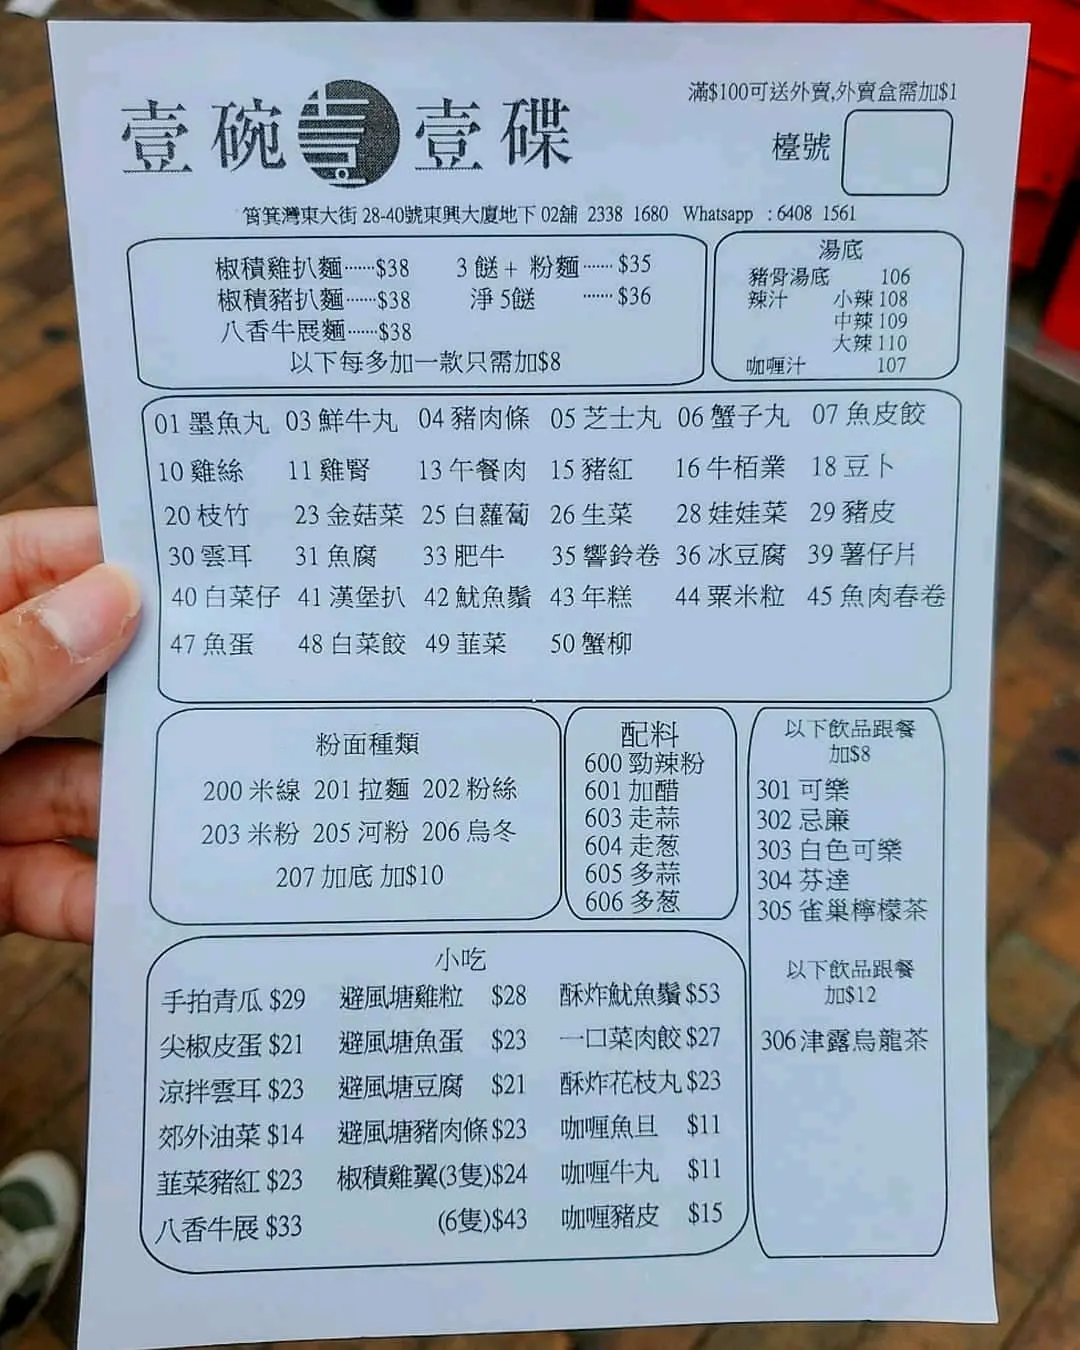 滿$100可送外賣,外賣盒需加$1
壹碗壹壹碟
檯號
筲箕灣東大街 28-40號東興大廈地下 02舖 2338 1680 Whatsapp : 6408 1561
椒積雞扒麵······$38 3餸+ 粉麵······ $35
椒積豬扒麵······$38 淨 5餸 ······ $36
八香牛展麵······$38
以下每多加一款只需加$8
湯底
豬骨湯底 106
辣汁 小辣 108
中辣 109
大辣 110
咖喱汁 107
01 墨魚丸 03 鮮牛丸 04 豬肉條 05 芝士丸 06 蟹子丸 07 魚皮餃
10 雞絲 11 雞腎 13 午餐肉 15 豬紅 16 牛栢業 18 豆卜
20 枝竹 23 金菇菜 25 白蘿蔔 26 生菜 28 娃娃菜 29 豬皮
30 雲耳 31 魚腐 33 肥牛 35 響鈴卷 36 冰豆腐 39 薯仔片
40 白菜仔 41 漢堡扒 42 魷魚鬚 43 年糕 44 粟米粒 45 魚肉春卷
47 魚蛋 48 白菜餃 49 韮菜 50 蟹柳
粉面種類
200 米線 201 拉麵 202 粉絲
203 米粉 205 河粉 206 烏冬
207 加底 加$10
配料
600 勁辣粉
601 加醋
603 走蒜
604 走葱
605 多蒜
606 多葱
以下飲品跟餐
加$8
301 可樂
302 忌廉
303 白色可樂
304 芬達
305 雀巢檸檬茶
以下飲品跟餐
加$12
306 津露烏龍茶
小吃
手拍青瓜 $29 避風塘雞粒 $28 酥炸魷魚鬚 $53
尖椒皮蛋 $21 避風塘魚蛋 $23 一口菜肉餃 $27
涼拌雲耳 $23 避風塘豆腐 $21 酥炸花枝丸 $23
郊外油菜 $14 避風塘豬肉條 $23 咖喱魚旦 $11
韮菜豬紅 $23 椒積雞翼(3隻)$24 咖喱牛丸 $11
八香牛展 $33 (6隻)$43 咖喱豬皮 $15